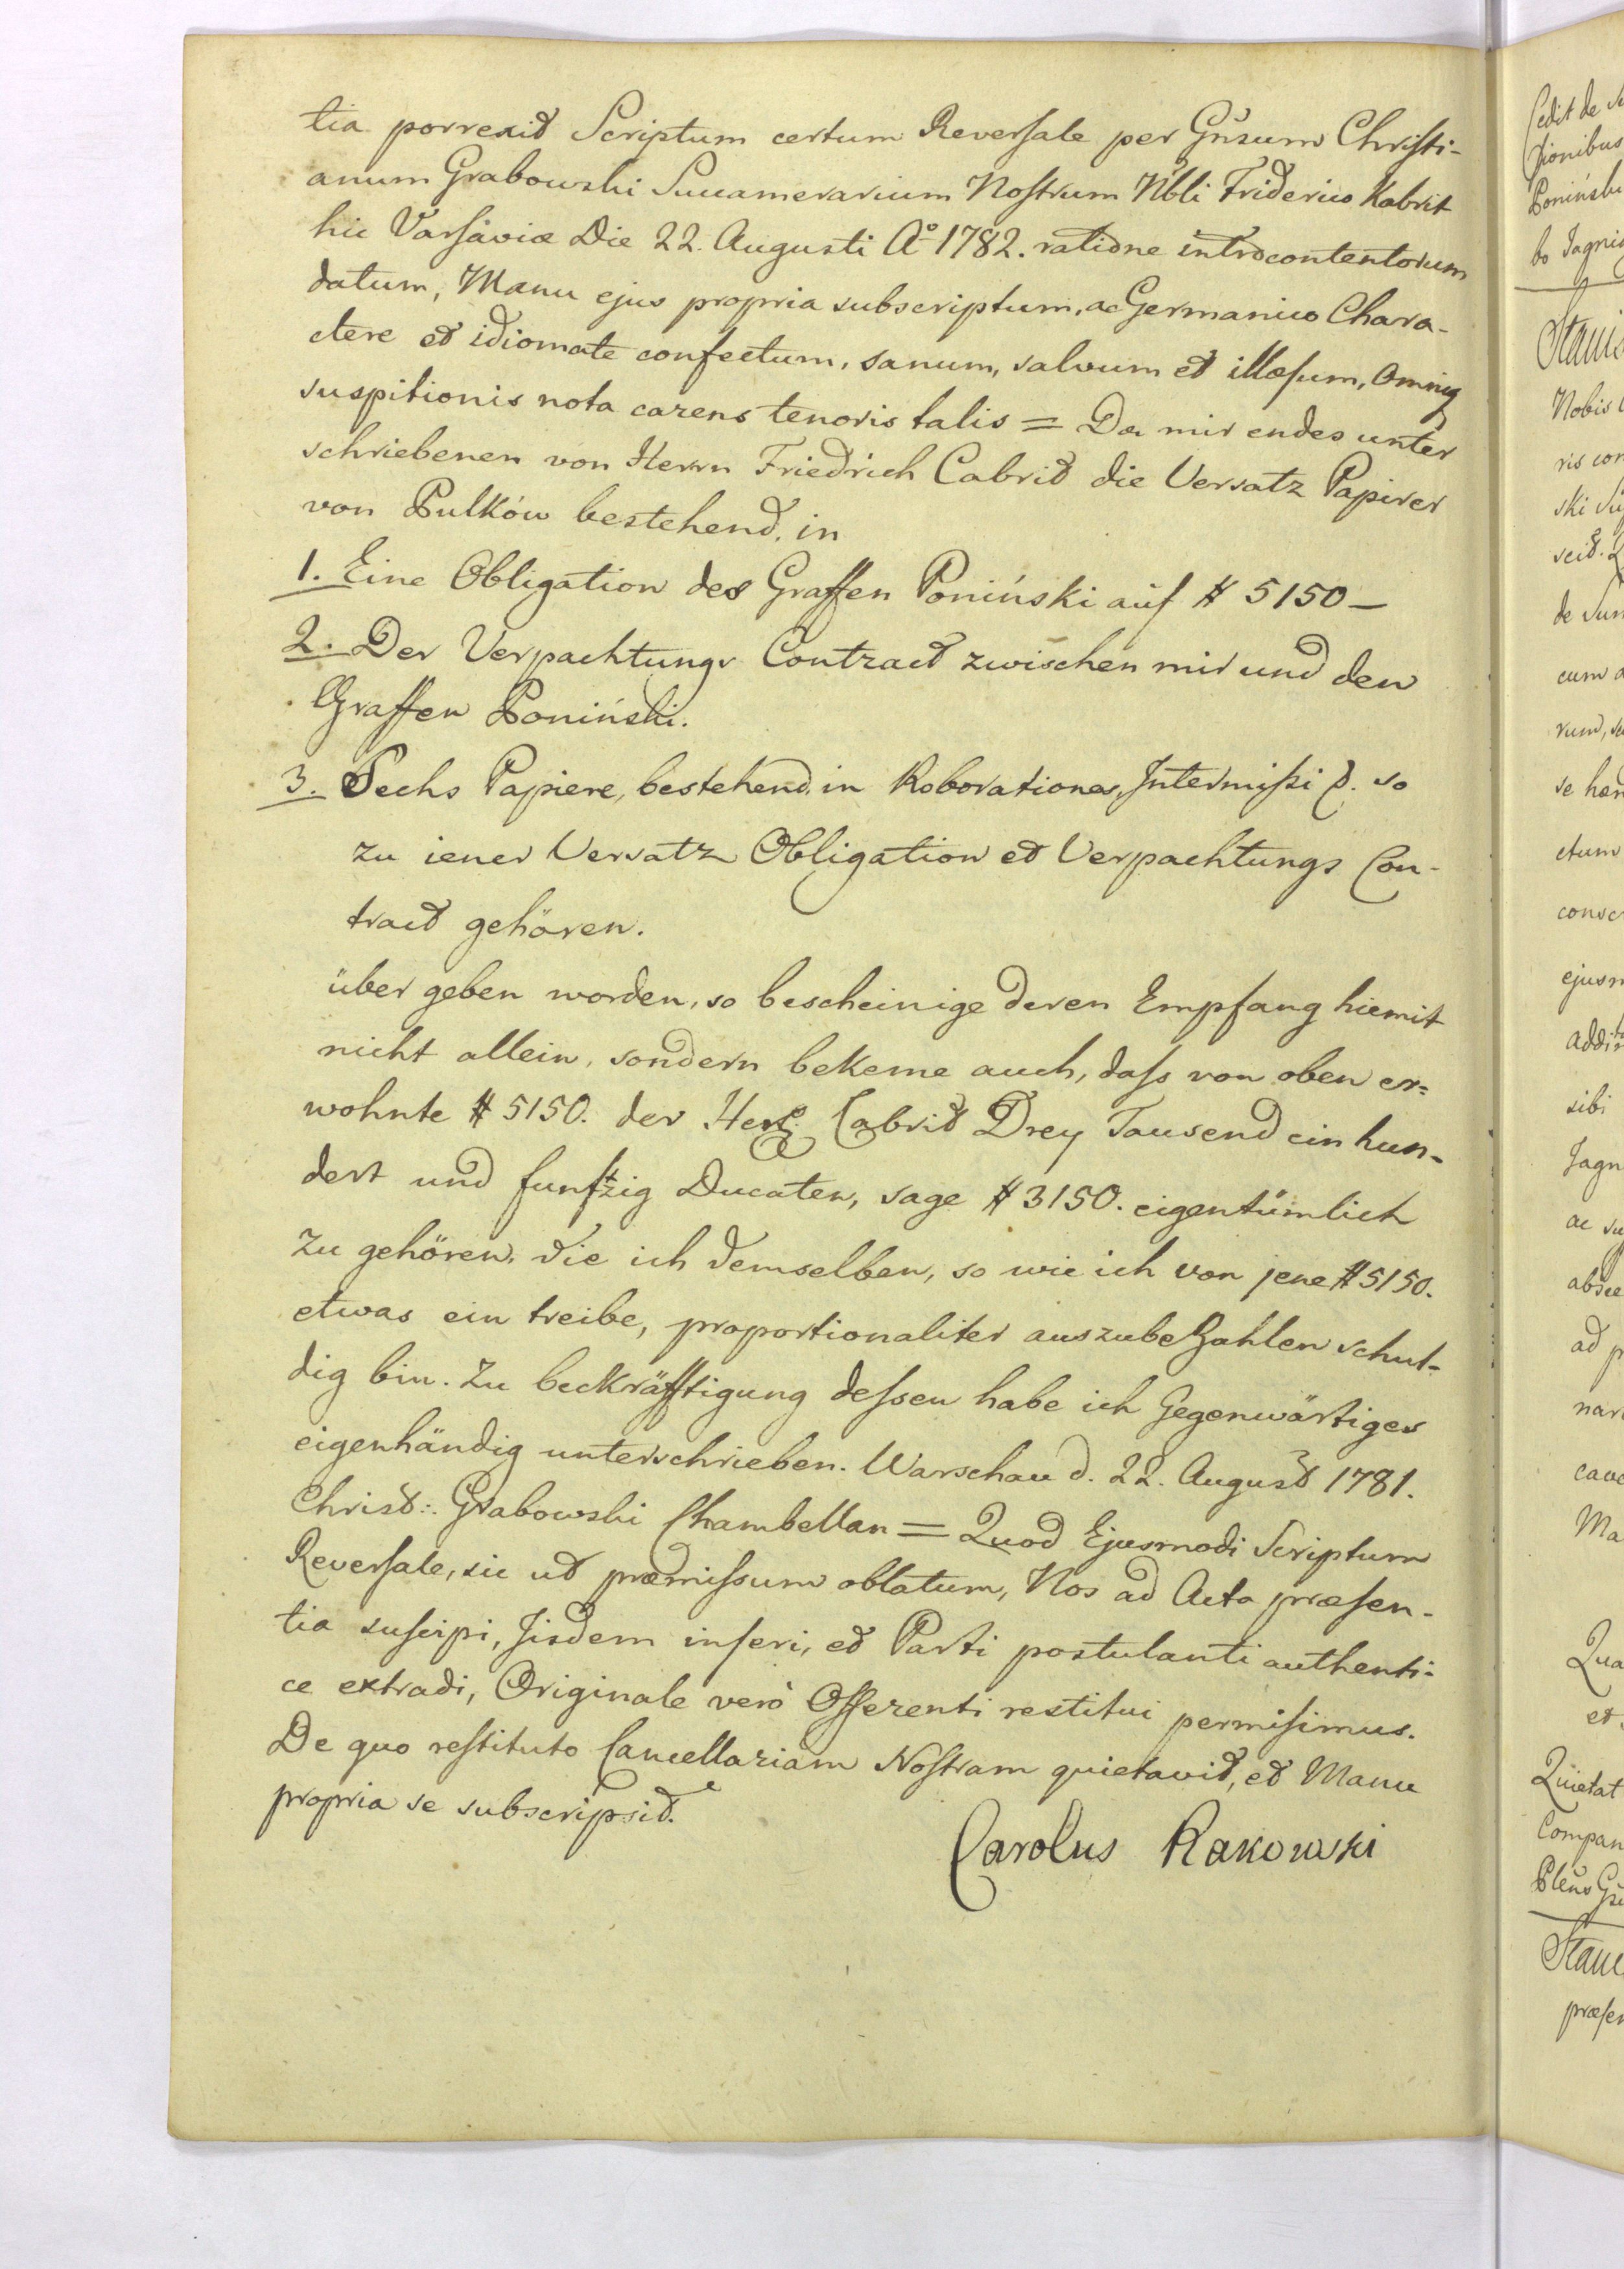 tia porrexit Scriptum certum Reversale per Gnsum Christi-
anum Grabowski Succamerarium Nostrum Nbli Friderico Kabrit
hic Varsaviæ Die 22. Augusti Aº 1782. ratione introcontentorum
datum, Manu ejus propria subscriptum, ac Germanico Chara-
ctere et idiomate confectum, sanum, salvum et illæsum, omniq
suspitionis nota carens tenoris talis = Da mir endes unter
schriebenen von Herrn Friedrich Cabrit die Versatz Papirer
von Pulków bestehend. in
1. Eine Obligation des Graffen Poniński auf # 5150 —
2. Der Verpachtungs Contract zwischen mir und den
Graffen Poniński.
3. Sechs Papiere, bestehend. in Roborationes, Intermissi d. so
zu iener Versatz Obligation et Verpachtungs Con-
tract gehören.
über geben worden, so bescheinige deren Empfang hiemit
nicht allein, sondern bekenne auch, dass von oben er=
wohnte # 5150. der Herr Cabrit Drey Tausend ein hun-
dert und funftzig Ducaten, sage # 3150. eigentümlich
zu gehören, die ich demselben, so wie ich von jene # 5150.
etwas ein treibe, proportionaliter auszubezahlen schul-
dig bin. Zu beckräfftigung dessen habe ich Gegenwärtiges
eigenhändig unterschrieben. Warschau d. 22. August 1781.
Christ: Grabowski Chambellan = Quod Ejusmodi Scriptum
Reversale, sic ut præmissum oblatum, Nos ad Acta præsen-
tia suscipi, Iisdem inseri, et Parti postulanti authenti-
ce extradi, Originale verò Offerenti restitui permisimus.
De quo restituto Cancellariam Nostram quietavit, et Manu
propria se subscripsit.
Carolus Rakowski